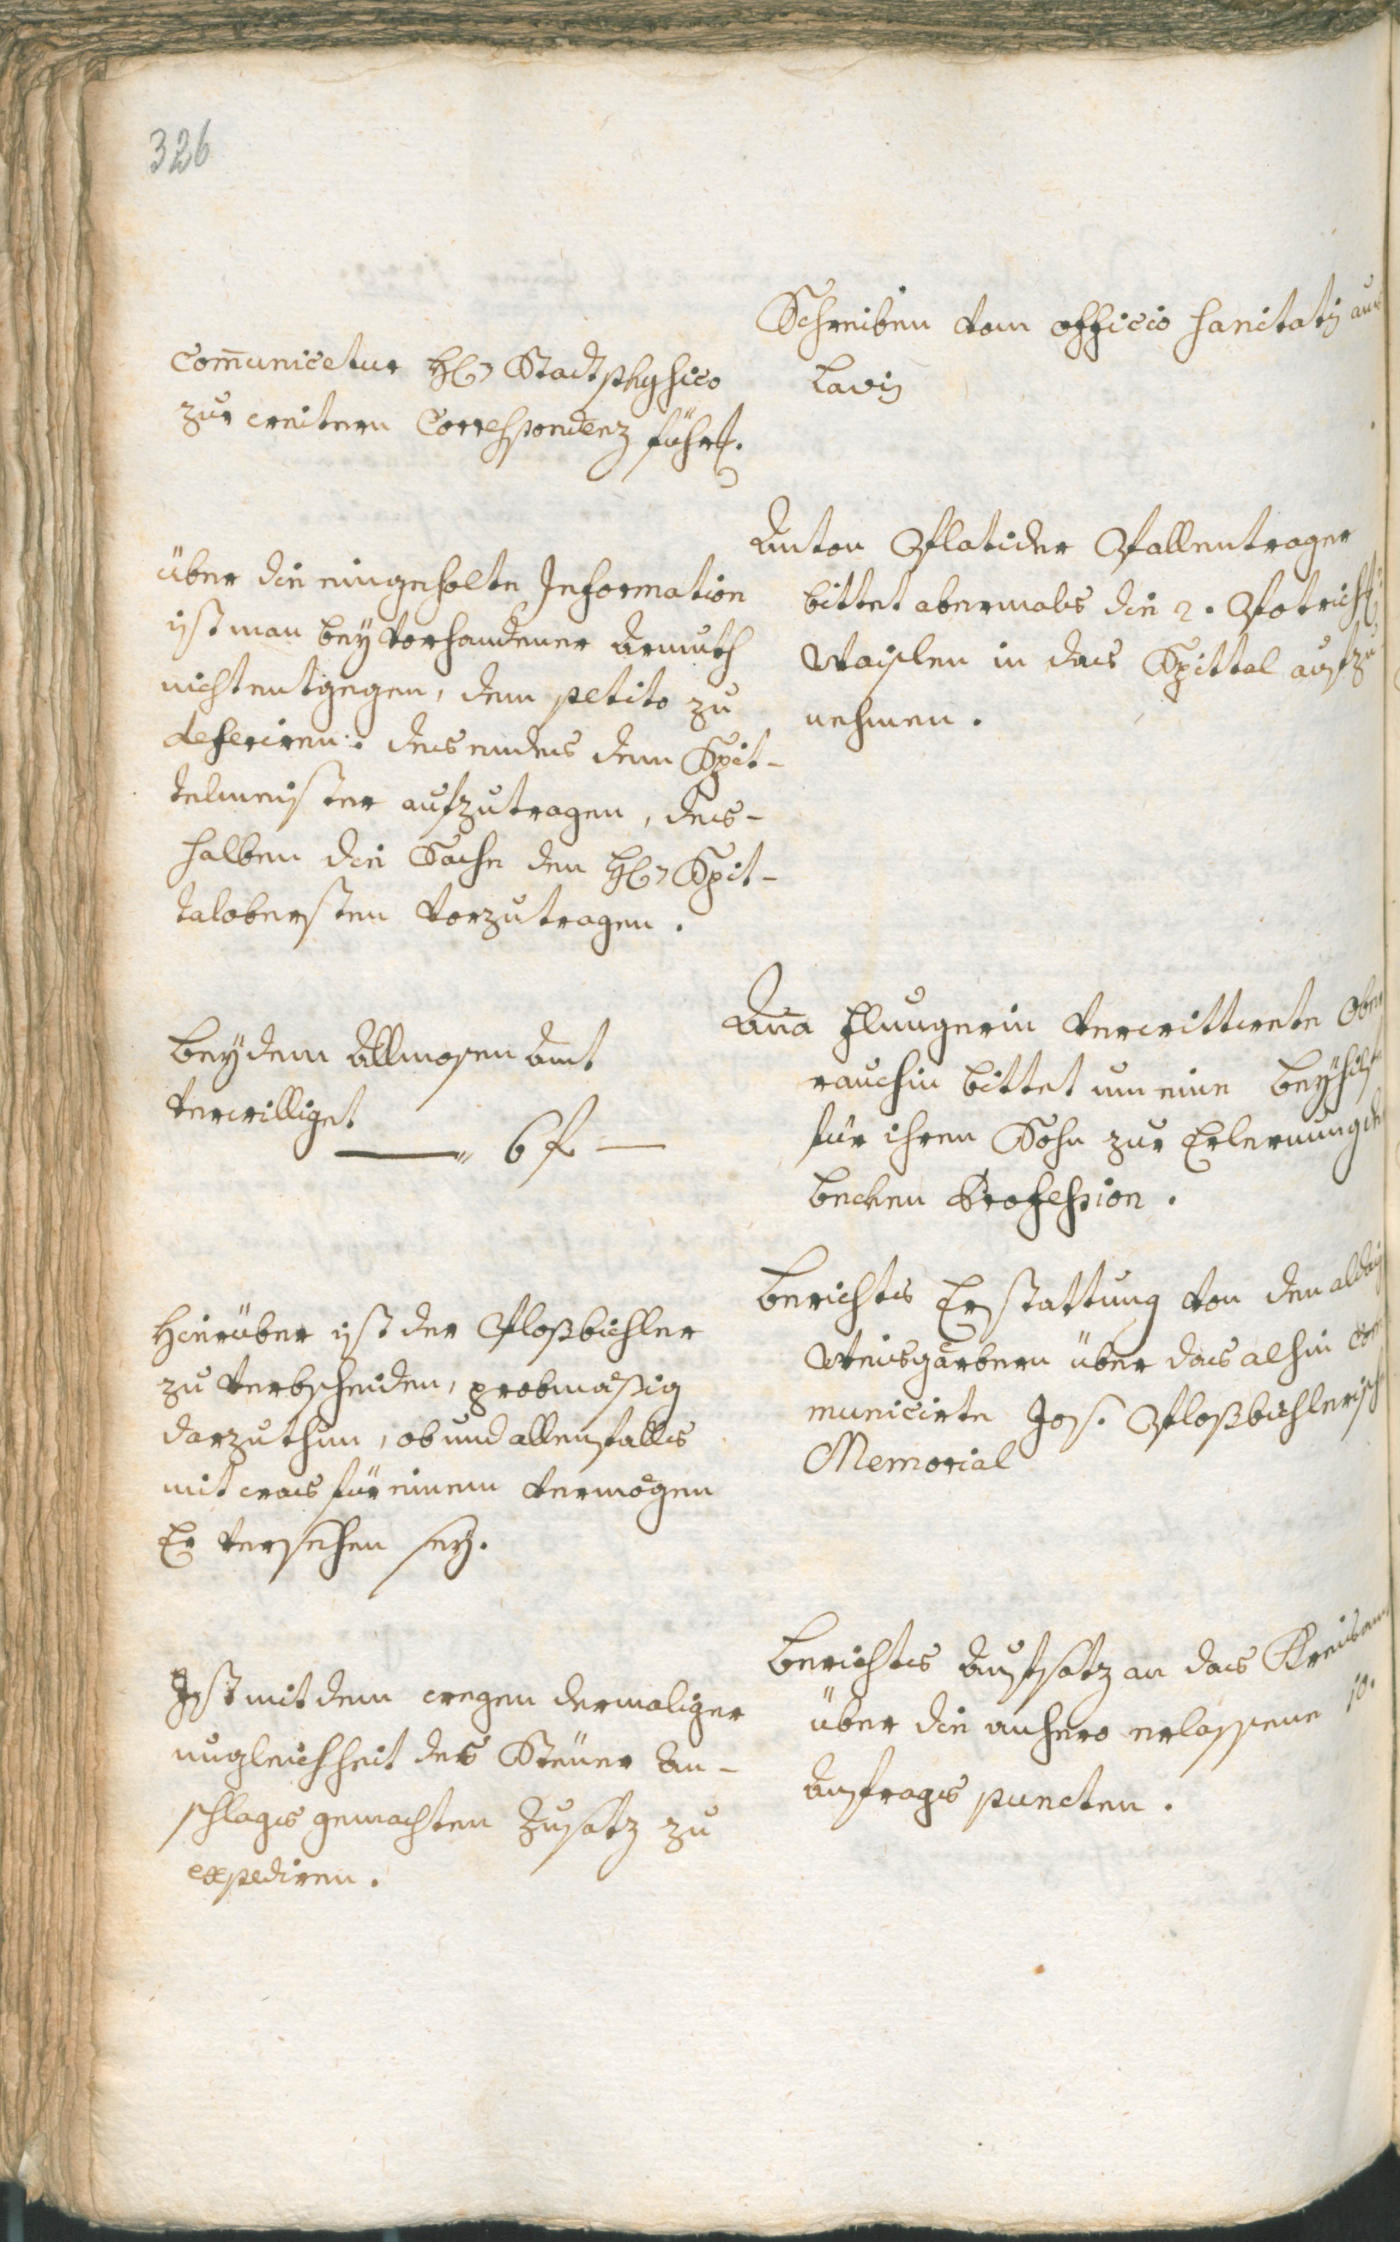 326
Schreiben vom officio sanitatis aus
Lavis
Com̄unicetur H: Stadtphysico
zur weitern Correspondenz führ:
Anton Pflatider Pfallentrager
bittet abermals die 2.
Waislen in das Spittal aufzu
nehmen.
über die eingeholte Information
ist man bey vorhandener Armuth
nicht entgegen, dem petito zu
deferiren: des endes dem Spit-
telmeister aufzutragen, des-
halben die Sache den H: Spit-
talobersten vorzutragen.
An̄a Flungerin verwittwete Ober
rauchin bittet um eine Beyhilf
für ihren Sohn zur Erlernung der
Becken Profession.
Bey dem Allmosen Amt
verwilliget
6 f
Berichts Erstattung von den aldasig
Weisgärbern über das alhin com
municirte Jos. Ploßbichlerisch
Memorial
Hierüber ist der Ploßbichler
zu verbscheiden, probmäßig
darzuthun, ob und allenfalls
mit was für einem vermögen
Er versehen sey.
Berichts Aufsatz an das Kreisamt
über die anhero erlassene 10.
Anfrags puncten.
Ist mit dem wegen dermaliger
ungleichheit des Steuer An-
schlags gemachten Zusatz zu
expediren.